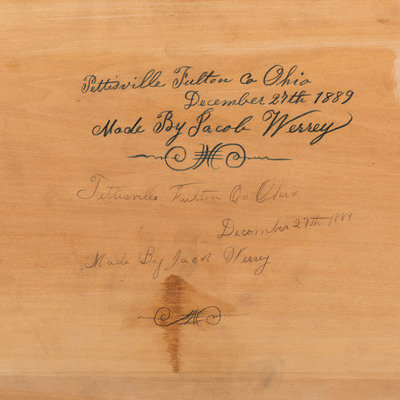 Pettisville Fulton Co Ohio
December 27th 1889
Made By Jacob Werrey
Pettisville Fulton Co Ohio
December 27th 1889
Made By Jacob Werrey